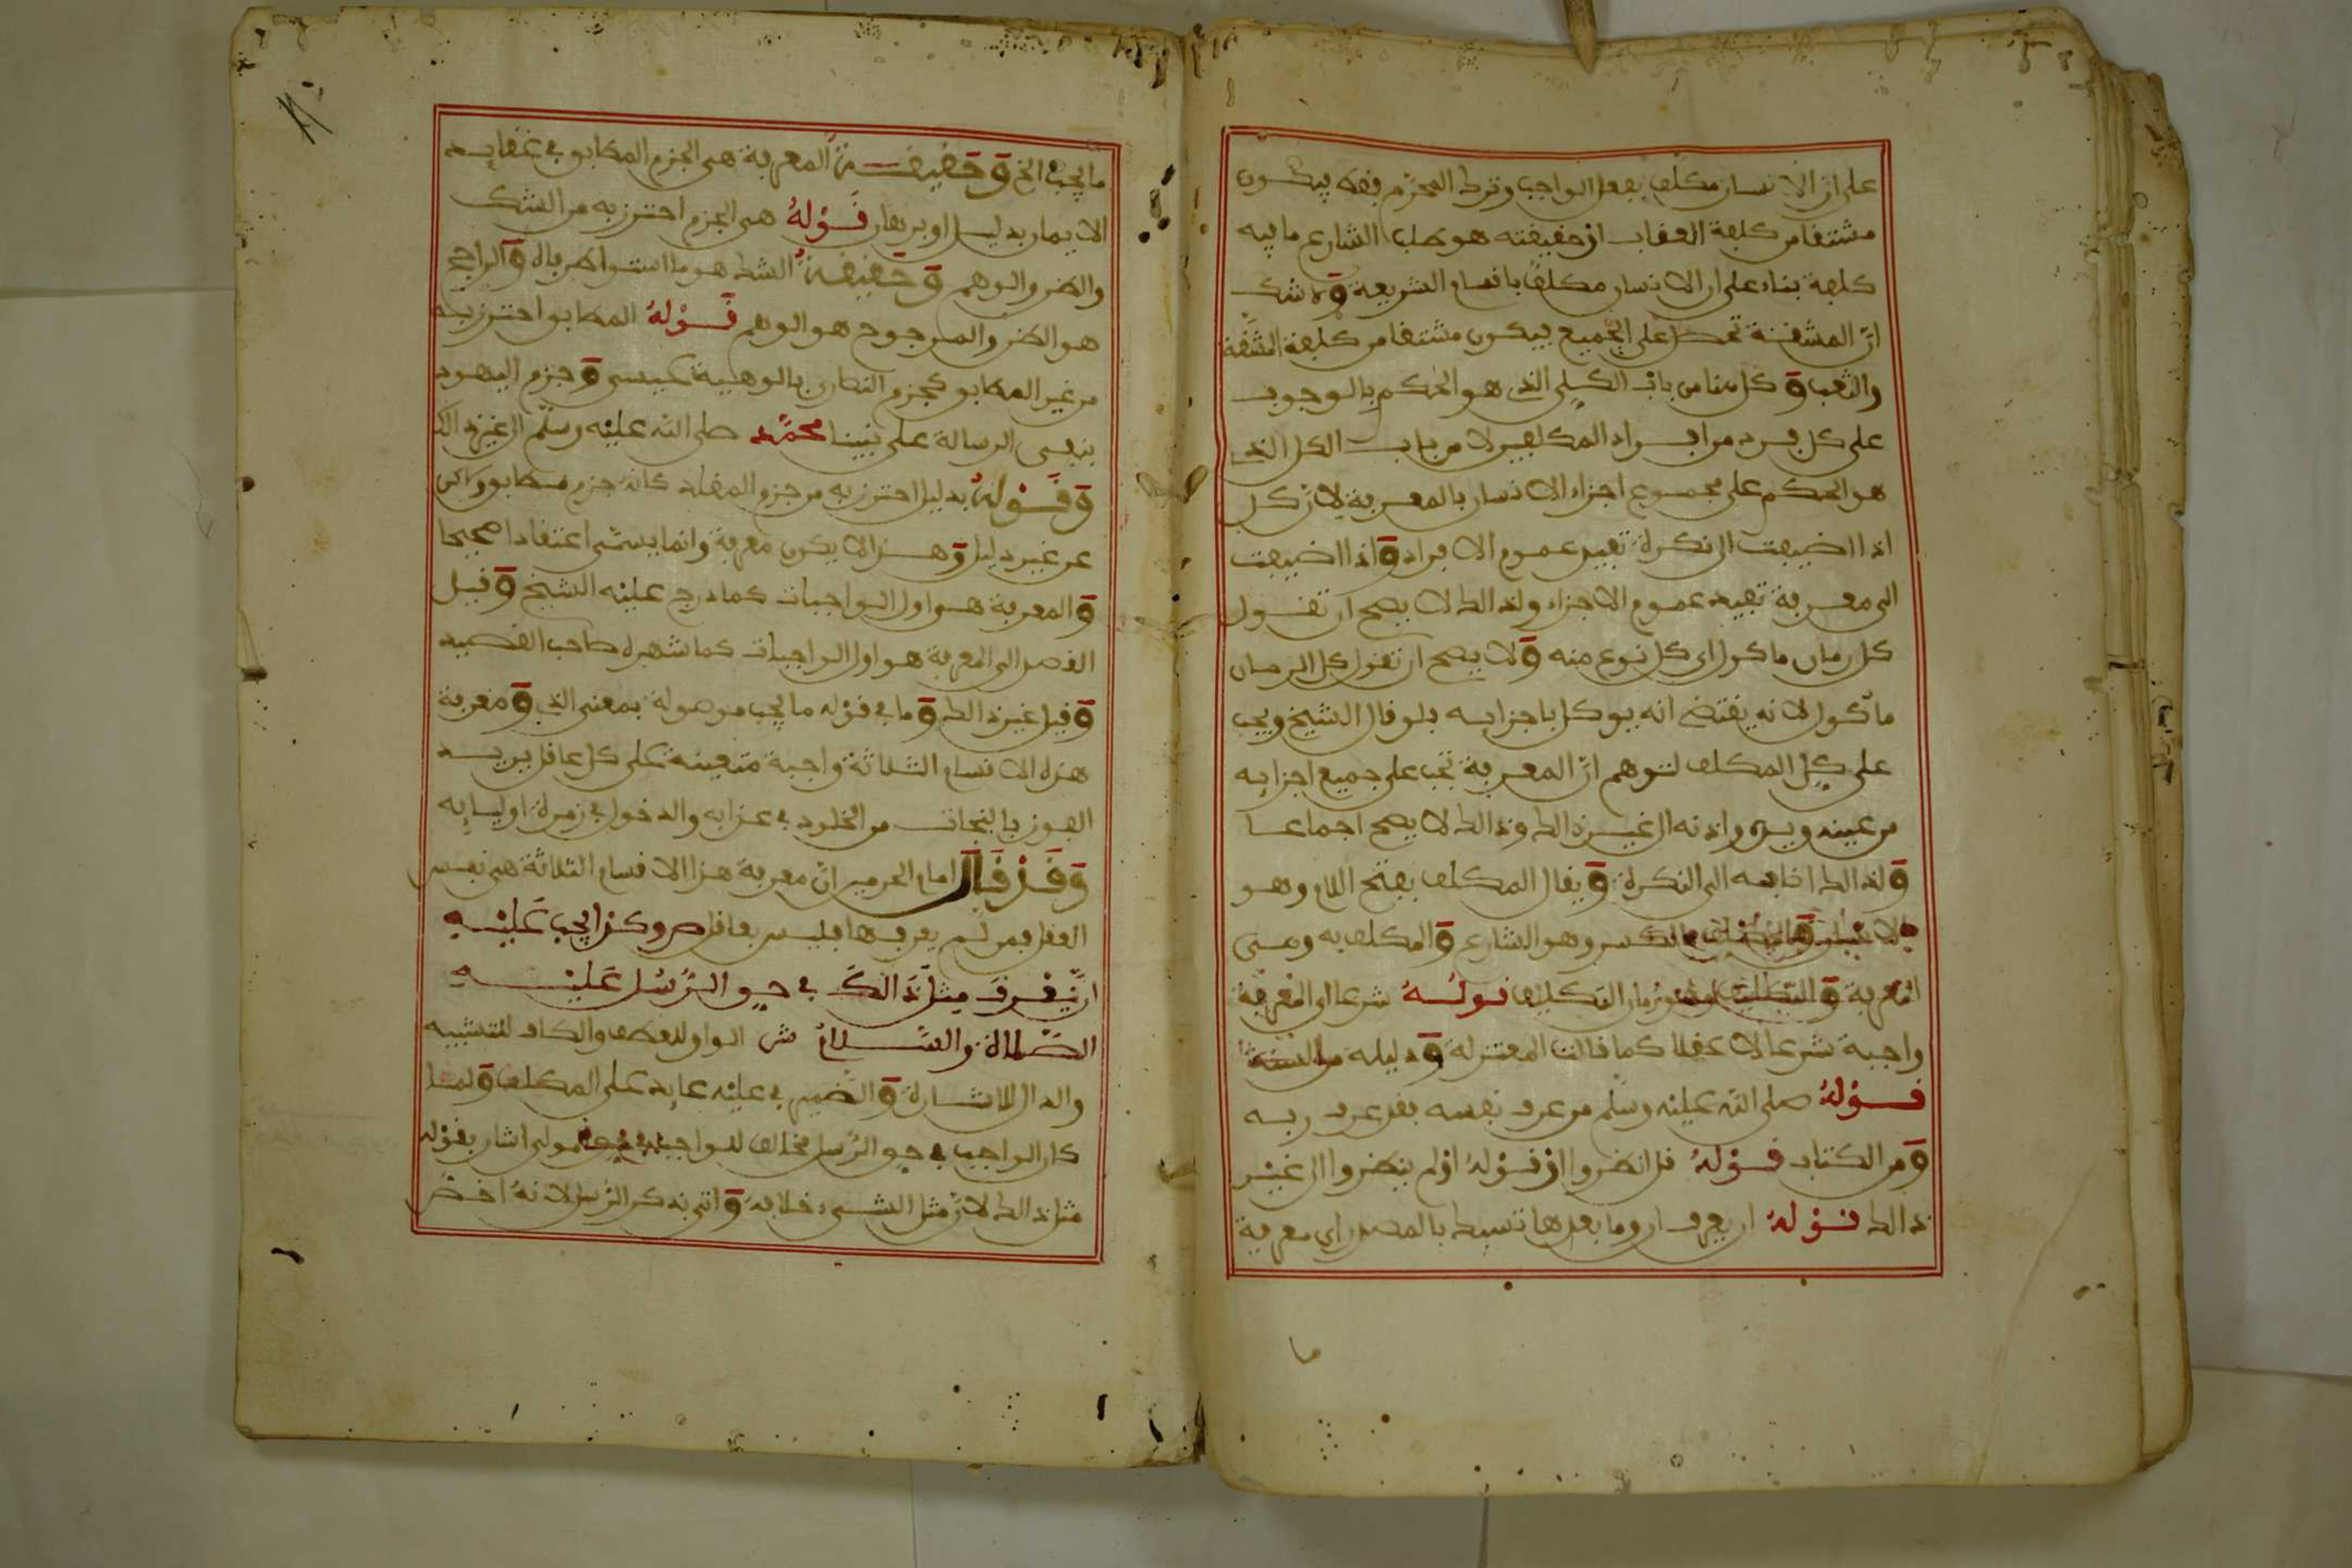 على ان الانسان مكلف بفعل الواجب وترك المحرم فقط فيكون
مشتقا من كلفة العقاب اذ حقيقته هو طلب الشارع ما فيه
كلفة بناء على ان الانسان مكلف باقسام الشريعة ولا شك
ان المشقة تحصل على الجميع فيكون مشتقا من كلفة المشقة
والتعب وكل هنا من باب الكلي الذي هو الحكم بالوجوب
على كل فرد من افراد المكلفين لا من باب الكل الذي
هو الحكم على مجموع اجزاء الانسان بالمعرفة لان كل
اذا اضيفت الى نكرة تفيد عموم الافراد واذا اضيفت
الى معرفة تفيد عموم الاجزاء ولذالك لا يصح ان تقول
كل رمان ماكول اي كل نوع منه ولا يصح ان تقول كل الرمان
مأكول لانه يقتضي انه يوكل باجزايه فلو قال الشيخ ويجب
على كل المكلف لتوهم ان المعرفة تجب على جميع اجزايه
من عينه ويده واذنه الى غير ذالك وذالك لا يصح اجماعا
ولذالك اضافه الى النكرة ويقال المكلف بفتح اللام وهو
الانسان والمكلف بالكسر وهو الشارع والمكلف به وهي
المعرفة والتكليف وهو زمان التكليف قوله شرعا اي المعرفة
واجبة شرعا لا عقلا كما قالت المعتزلة ودليله من السنة
قوله صلى الله عليه وسلم من عرف نفسه فقد عرف ربه
ومن الكتاب قوله قل انظروا وقوله اولم ينظروا الى غير
ذالك قوله ان يعرف ان وما بعدها تسبك بالمصدر اي معرفة
ما
ما يجب الخ وحقيقة المعرفة هي الجزم المطابق في عقايد
الايمان بدليل او برهان قوله هي الجزم احترز به من الشك
والظن والوهم وحقيقة الشك هو ما استوا طرفاه والراجح
هو الظن والمرجوح هو الوهم قوله المطابق احترز به
من غير المطابق كجزم النصارى بالوهية عيسى وجزم اليهود
بنفي الرسالة على نبينا محمد صلى الله عليه وسلم الى غير ذالك
وقوله بدليل احترز به من جزم المقلد كانه جزم مطابق ولاكن
عن غير دليل وهذا لا يكون معرفة وانما يسمى اعتقادا صحيحا
والمعرفة هي اول الواجبات كما درج عليه الشيخ وقيل
القصد الى المعرفة هو اول الواجبات كما شهره صاحب القصيد
وقيل غير ذالك وما في قوله ما يجب موصولة بمعنى الذي ومعرفة
هذه الاقسام الثلاثة واجبة متعينة على كل عاقل يريد
الفوز بالنجات من الخلود في عذابه والدخول في زمرة اوليايه
وقد قال امام الحرمين ان معرفة هذا الاقسام الثلاثة هي نفس
العقل فمن لم يعرفها فليس بعاقل ص وكذا يجب عليه
ان يعرف مثل ذالك في حق الرسل عليه
الصلاة والسلام ش الواو للعطف والكاف للتشبيه
والدال للاشارة والضمير في عليه عايد على المكلف ولما
كان الواجب في حق الرسل مخالف للواجب في حق مولى اشار بقوله
مثل ذالك لان مثل الشيء خلافه واتى بذكر الرسل لانه اخص